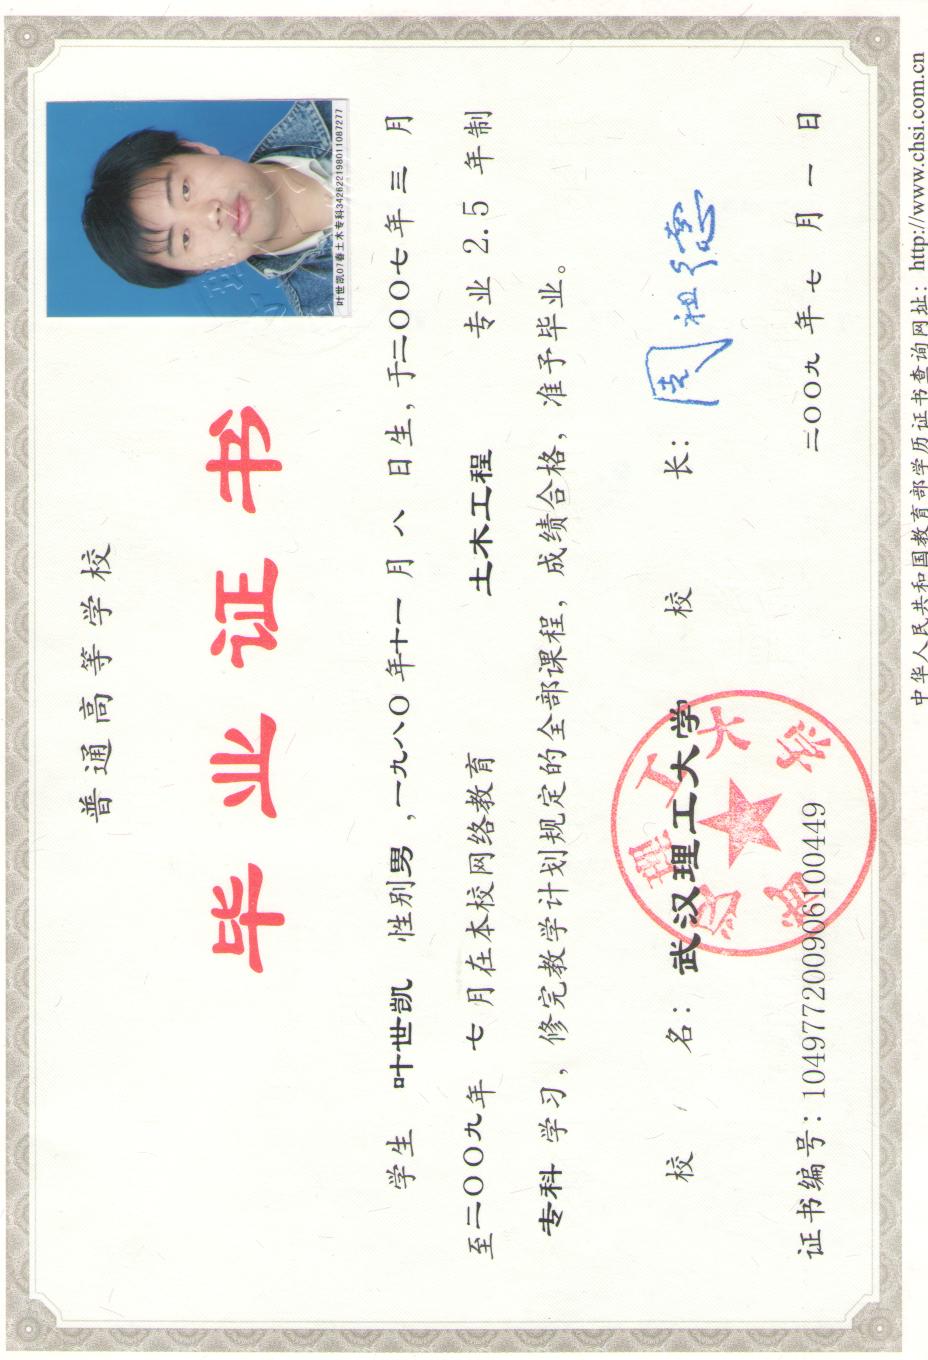 普通高等学校
毕业证书
叶世凯07春土木专科342622198011087277
学生 叶世凯 性别男，一九八〇年十一月八日生，于二〇〇七年三月
至二〇〇九年七月在本校网络教育 土木工程 专业 2.5 年制
专科 学习，修完教学计划规定的全部课程，成绩合格，准予毕业。
校 名：武汉理工大学 校 长：周祖德
武汉理工大学
证书编号：104977200906100449 二〇〇九年七月一日
中华人民共和国教育部学历证书查询网址：http://www.chsi.com.cn